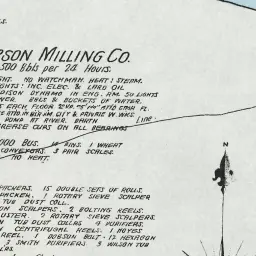 RSON MILLING CO.
500 Bbls per 24 Hours.
HT. NO WATCHMAN. HEAT: STEAM.
GHTS: INC. ELEC. & LARD OIL
DISON DYNAMO IN ENG. RM. 50 LIGHTS
BBLS & BUCKETS OF WATER.
EACH FLOOR
CITY & PRIVATE W. WKS.
POND AT RIVER. EARTH
Line.
GREASE CUPS ON ALL BEARINGS
000 BUS. BINS. 1 WHEAT
CONVEYORS. 3 PAIR SCALES
NO HEAT.
N
PACKERS. 15 DOUBLE SETS OF ROLLS.
PACKER. 1 ROTARY SIEVE SCALPER
TUB DUST COLL.
ON SCALPERS. 2 BOLTING REELS.
DUSTER. 2 ROTARY SIEVE SCALPERS.
N TUB DUST COLLRS. 4 PURIFIERS.
CENTRIFUGAL REELS. 1 NOYES
REEL. 1 BODSUN BOLT. 12 HEXAGON
3 SMITH PURIFIERS. 3 WILSON TUB